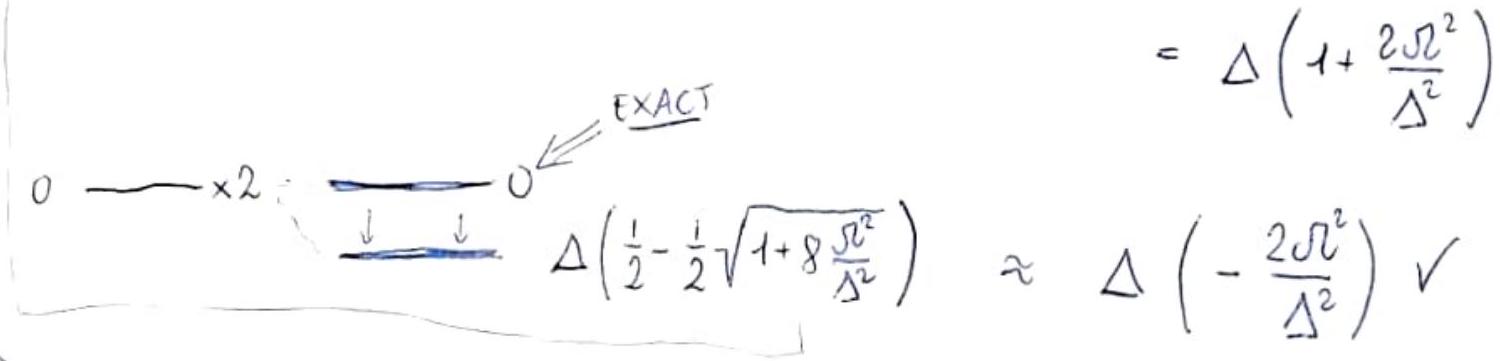 = Δ(1 + 2Ω²/Δ²)
EXACT
0 ×2 0
Δ(1/2 - 1/2 √(1 + 8 Ω²/Δ²)) ≈ Δ(- 2Ω²/Δ²) ✓